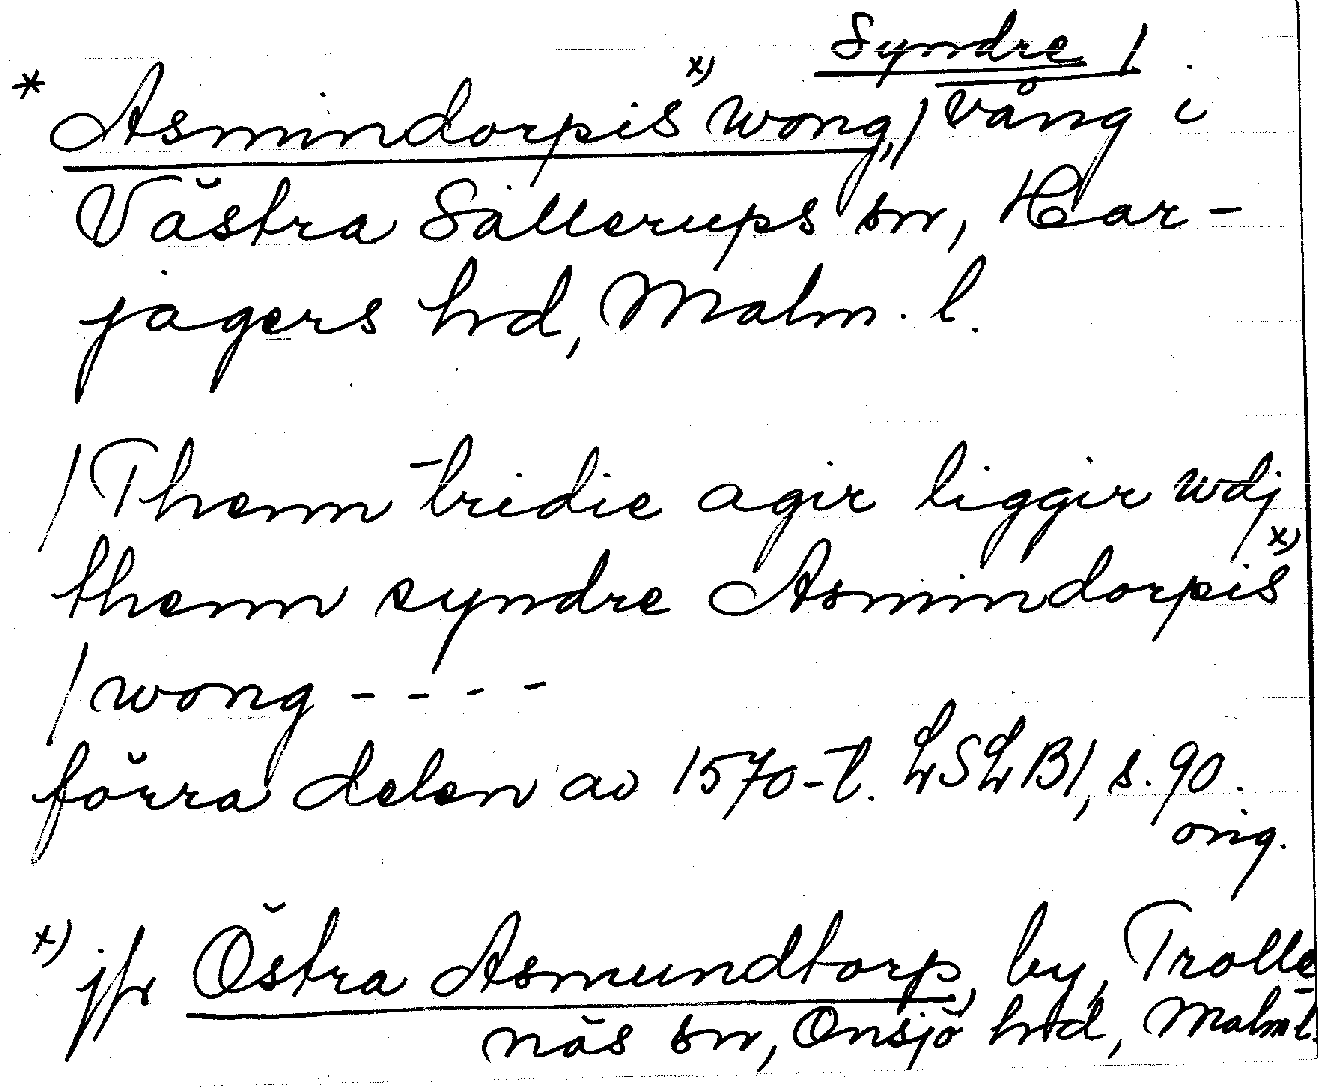 Syndre /
* Asmindorpis x) wong, / vång i
Västra Sallerups sn, Har-
jagers hd, Malm. l.
/ Thenn tridie agir liggir wdj
thenn syndre Asmindorpis x)
/ wong - - - -
förra delen av 1570-t. LSLB1, s. 90.
orig.
x) jfr Östra Asmundtorp, by, Trolle-
näs sn, Onsjö hd, Malm l.